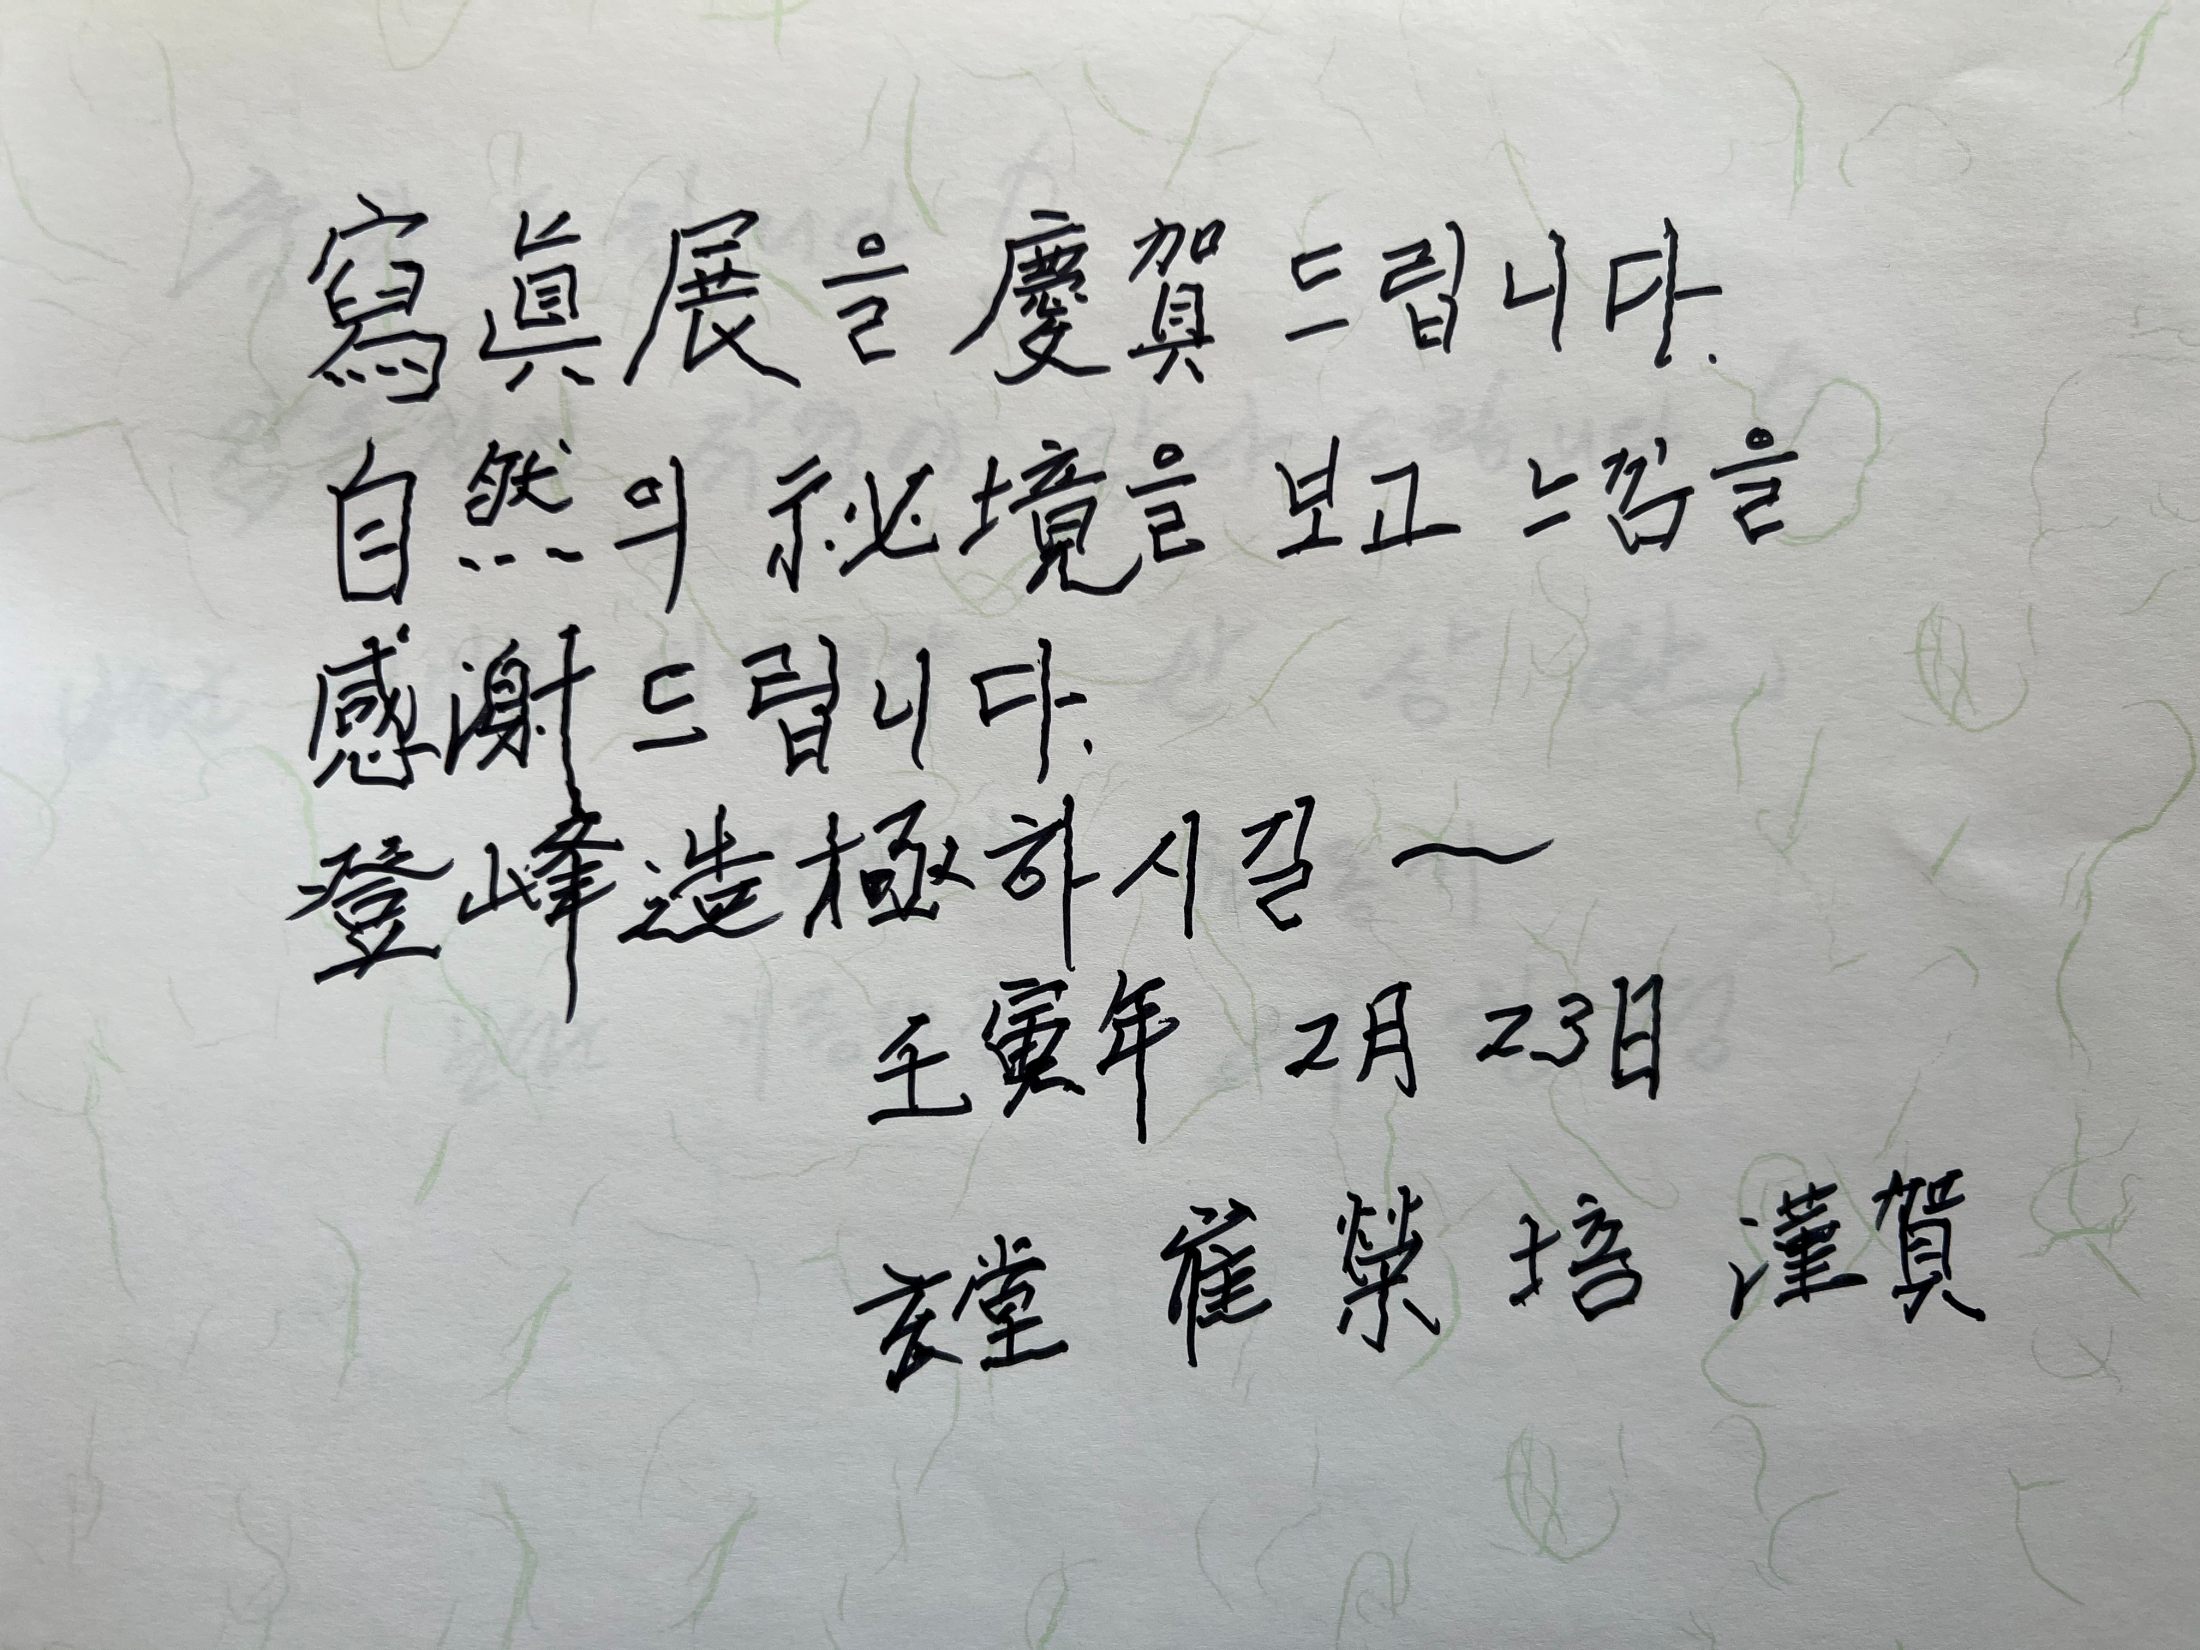 寫眞展을 慶賀드립니다.
自然의 祕境을 보고 느낌을
感謝드립니다.
登峰造極하시길 ~
壬寅年 2月 23日
玄堂 崔榮培 謹賀